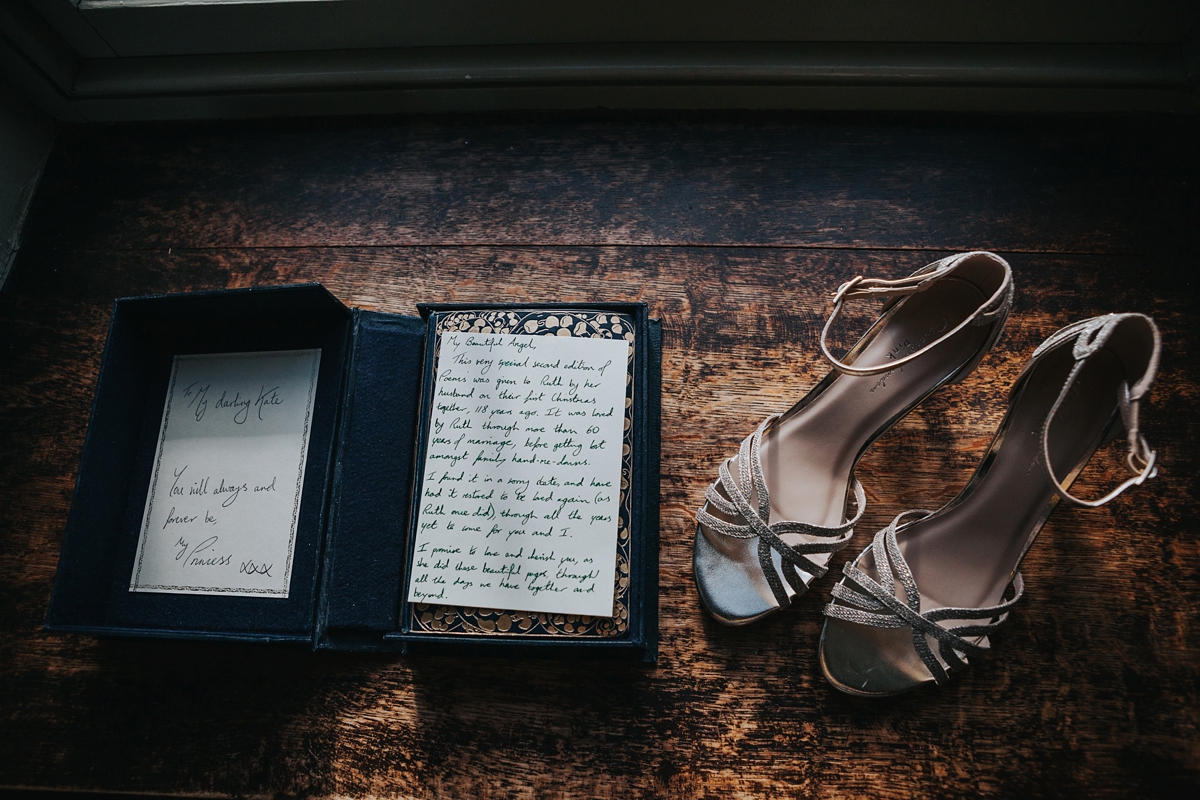 To My darling Kate
You will always and
forever be,
My Princess xxx
My Beautiful Angel,
This very special second edition of
Poems was given to Ruth by her
husband on their first Christmas
together, 118 years ago. It was loved
by Ruth through more than 60
years of marriage, before getting lost
amongst family hand-me-downs.
I found it in a sorry state, and have
had it restored to be loved again (as
Ruth once did) through all the years
yet to come for you and I.
I promise to love and cherish you, as
she did these beautiful pages, through
all the days we have together and
beyond.